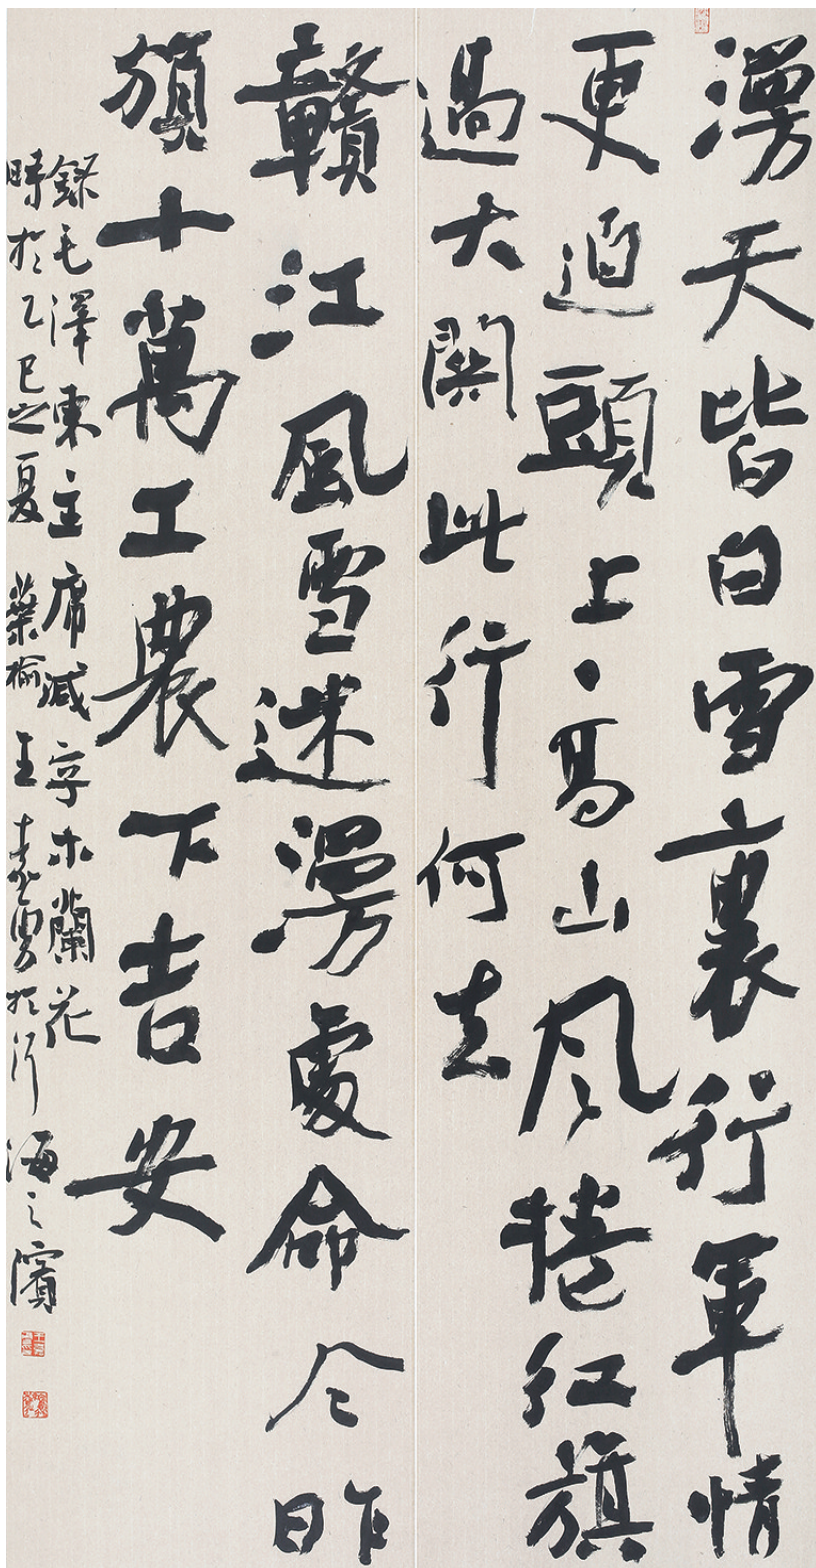 漫天皆白雪裏行軍情
更迫頭上・高山风捲红旗
過大関此行何去
贛江風雪迷漫處命令昨
頒十萬工農下吉安
錄毛澤東主席減字木蘭花
時於乙巳之夏葉榆王勇於洱海之濱